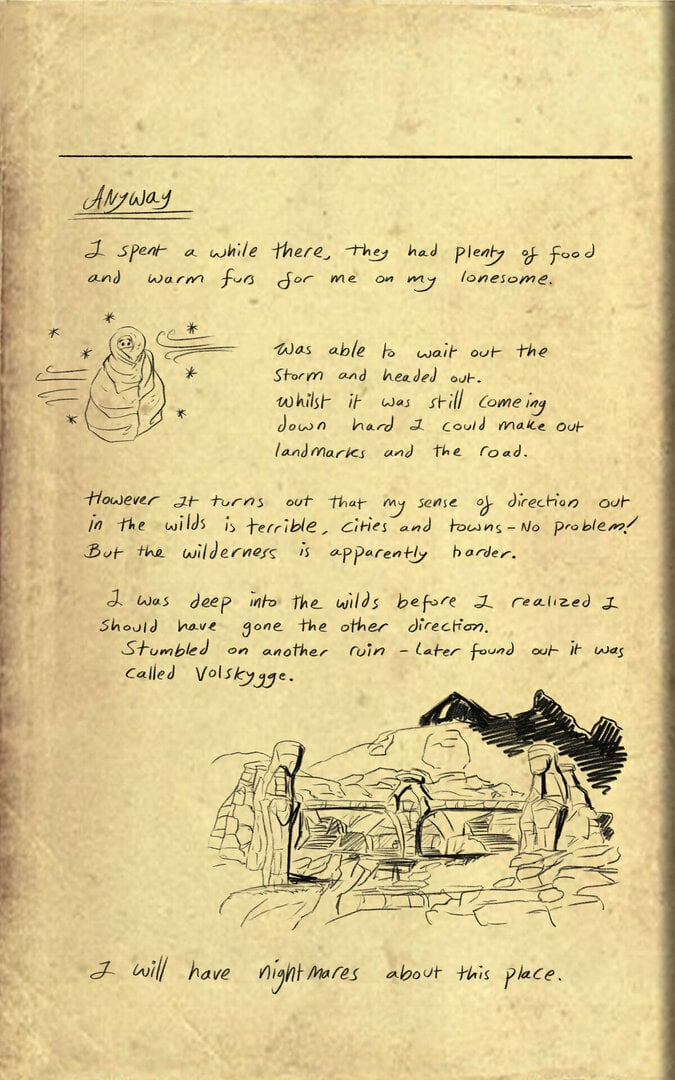 Anyway
I spent a while there, they had plenty of food
and warm furs for me on my lonesome.
Was able to wait out the
Storm and headed out.
Whilst it was still comeing
down hard I could make out
landmarks and the road.
However It turns out that my sense of direction out
in the wilds is terrible, Cities and towns - No problem!
But the wilderness is apparently harder.
I was deep into the wilds before I realized I
should have gone the other direction.
Stumbled on another ruin - later found out it was
called Volskygge.
I will have nightmares about this place.